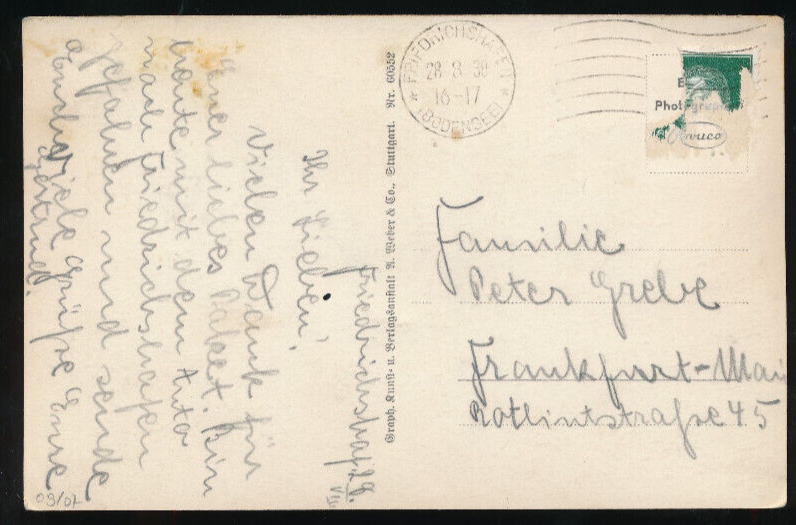 Friedrichshaf. 28.
VIII
Ihr Lieben!
Vielen Dank für
Euer liebes Paket. Bin
heute mit dem Auto
nach Friedrichshafen
gefahren und sende
Euch viele Grüße Eure
Gertrud.
09/07
Graph. Kunst- u. Verlagsanstalt A. Weber & Co., Stuttgart. Nr. 60552
FRIEDRICHSHAFEN
28 8 38
16-17
(BODENSEE)
Familie
Peter Grebe
Frankfurt-Main
Rotlintstraße 45